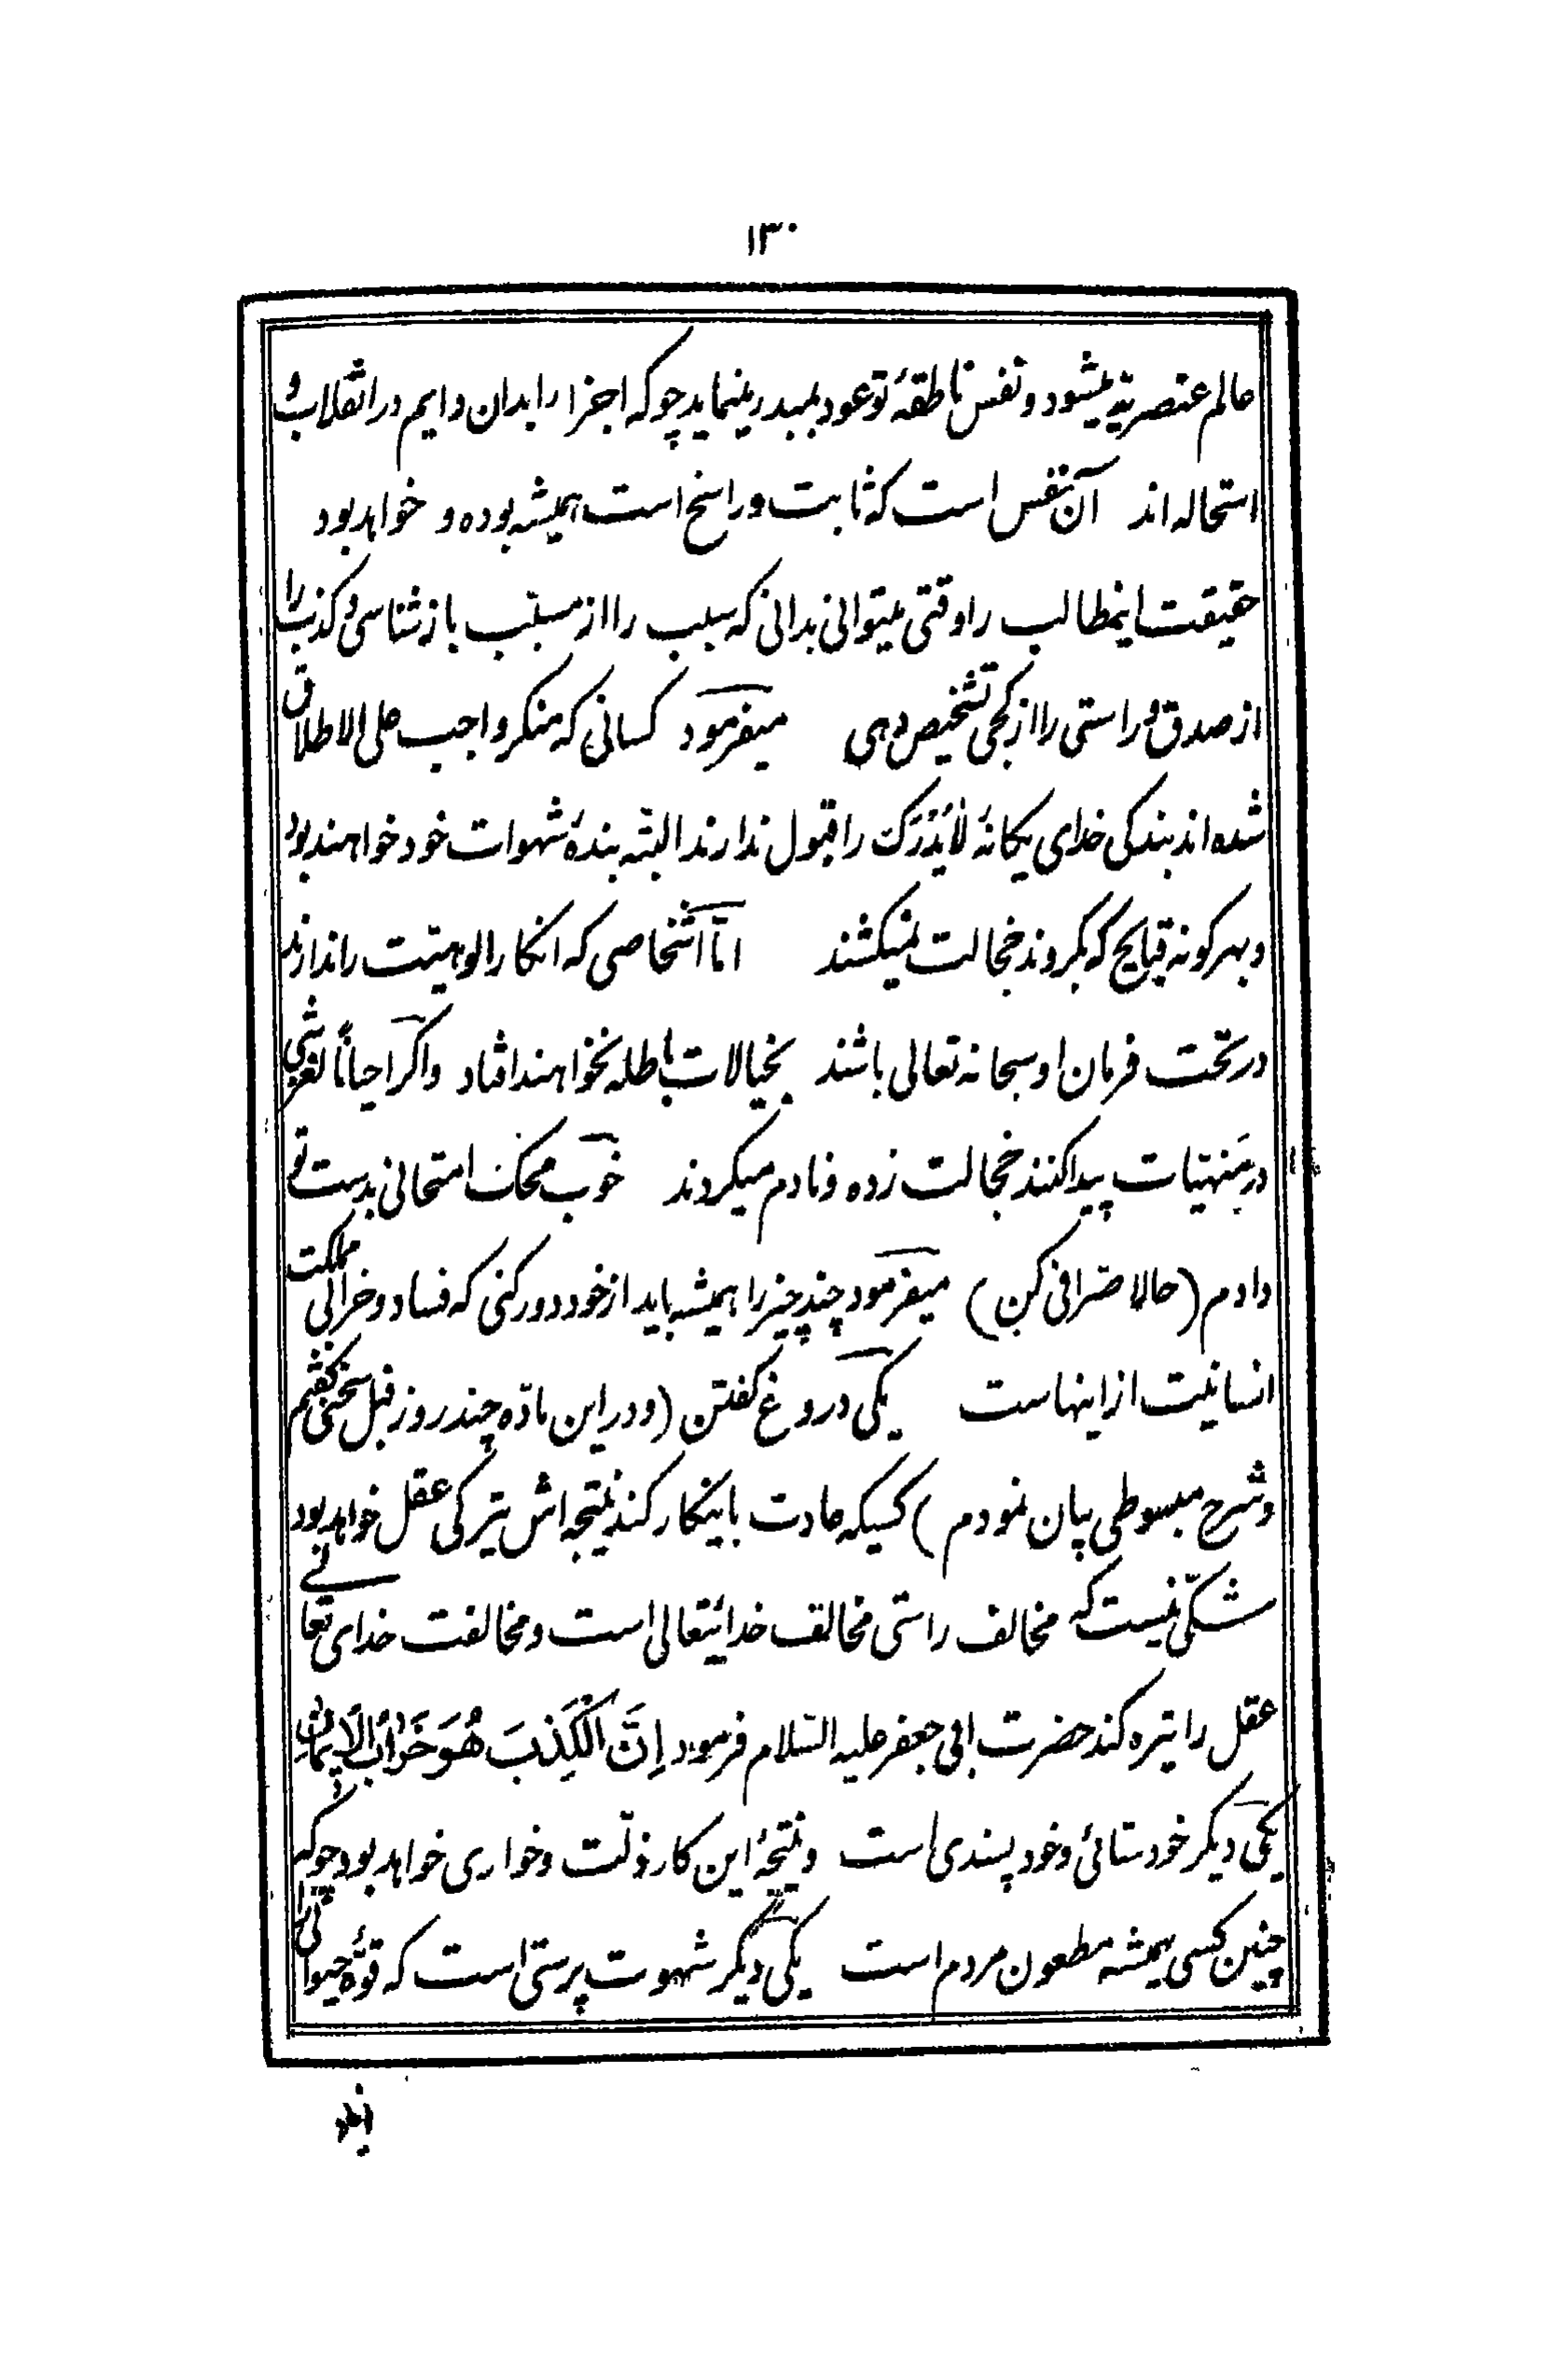 ۱۳۰
عالم عنصریه میشود و نفس ناطقهٔ تو عود بمبدر مینماید چوکه اجزا را بدان دایم در انقلاب و
استحاله اند آن نفس است که ثابت و راسخ است همیشه بوده و خواهد بود
حقیقت اینمطالب را وقتی میتوانی بدانی که سبب را از مسبّب بازشناسی و کذب را
از صدق و راستی را از کجی تشخیص دهی میفرمود کسانی که منکر واجب علی الاطلاق
شده اند بندکی خدای یکانهٔ لایُدْرَک را قبول ندارند البتّه بندهٔ شهوات خود خواهند بود
و بهر کونه قبایح که بکروند خجالت نمیکشند امّا اشخاصی که انکار الوهیّت را ندارند
در تحت فرمان او سبحانه تعالی باشند بخیالات باطله نخواهند افتاد و اکر احیاناً لغزشی
در مَنهیّات پیدا کنند خجالت زده و نادم میکردند خوب محک امتحانی بدست تو
دادم (حالا صرافی کن) میفرمود چند چیز را همیشه باید از خود دور کنی که فساد و خرابی مملکت
انسانیت از اینهاست یکی دروغ کفتن (و در این مادّه چند روز قبل سخنی کفتم
و شرح مبسوطی بیان نمودم) کسیکه عادت باینکار کند نتیجه اش تیرکی عقل خواهد بود
شکّی نیست که مخالف راستی مخالف خدایتعالی است و مخالفت خدای تعالی
عقل را تیره کند حضرت ابی جعفر علیه السّلام فرمود اِنَّ الْکِذبَ هُوَ خَرابُ الْاِیمانِ
یکی دیکر خودستائی و خود پسندی است و نتیجهٔ این کار ذلّت و خواری خواهد بود چوکه
چنین کسی همیشه مطعون مردم است یکی دیکر شهوت پرستی است که قوّهٔ حیوانی را